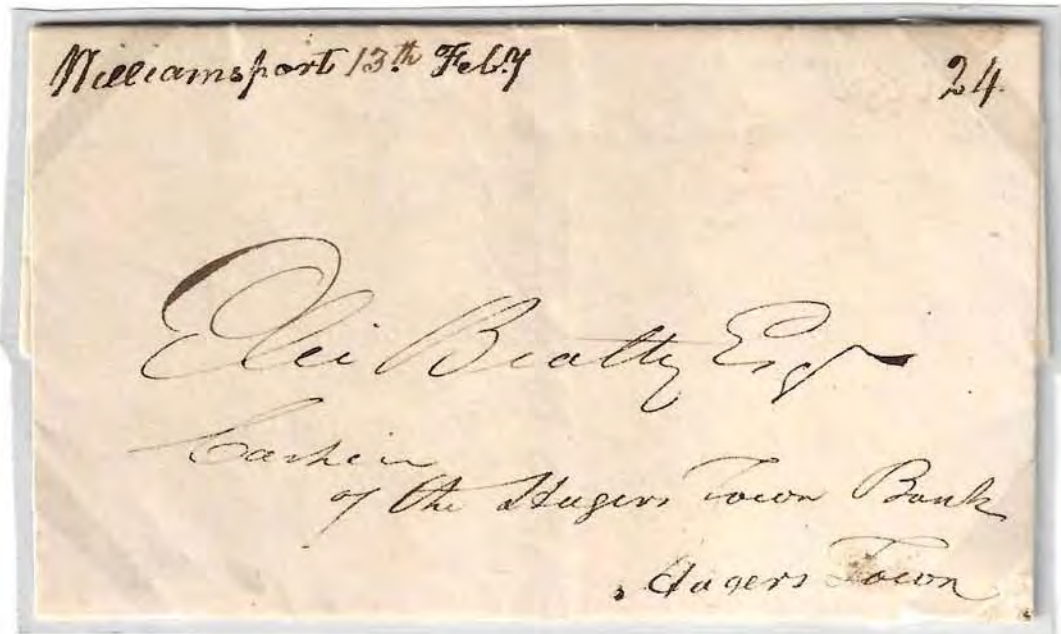 Williamsport 13th Feby
24
Eli Beatty Esqr
Cashier
of the Hagers Town Bank
Hagers Town